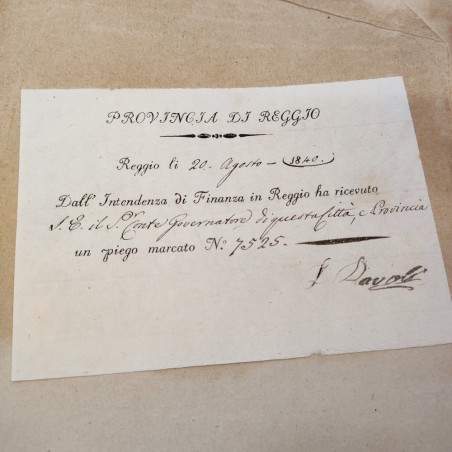 PROVINCIA DI REGGIO
Reggio li 20. Agosto - 1840.
Dall' Intendenza di Finanza in Reggio ha ricevuto
S. E. il S.r Conte Governatore di questa Città, e Provincia
un piego marcato N.° 7525.